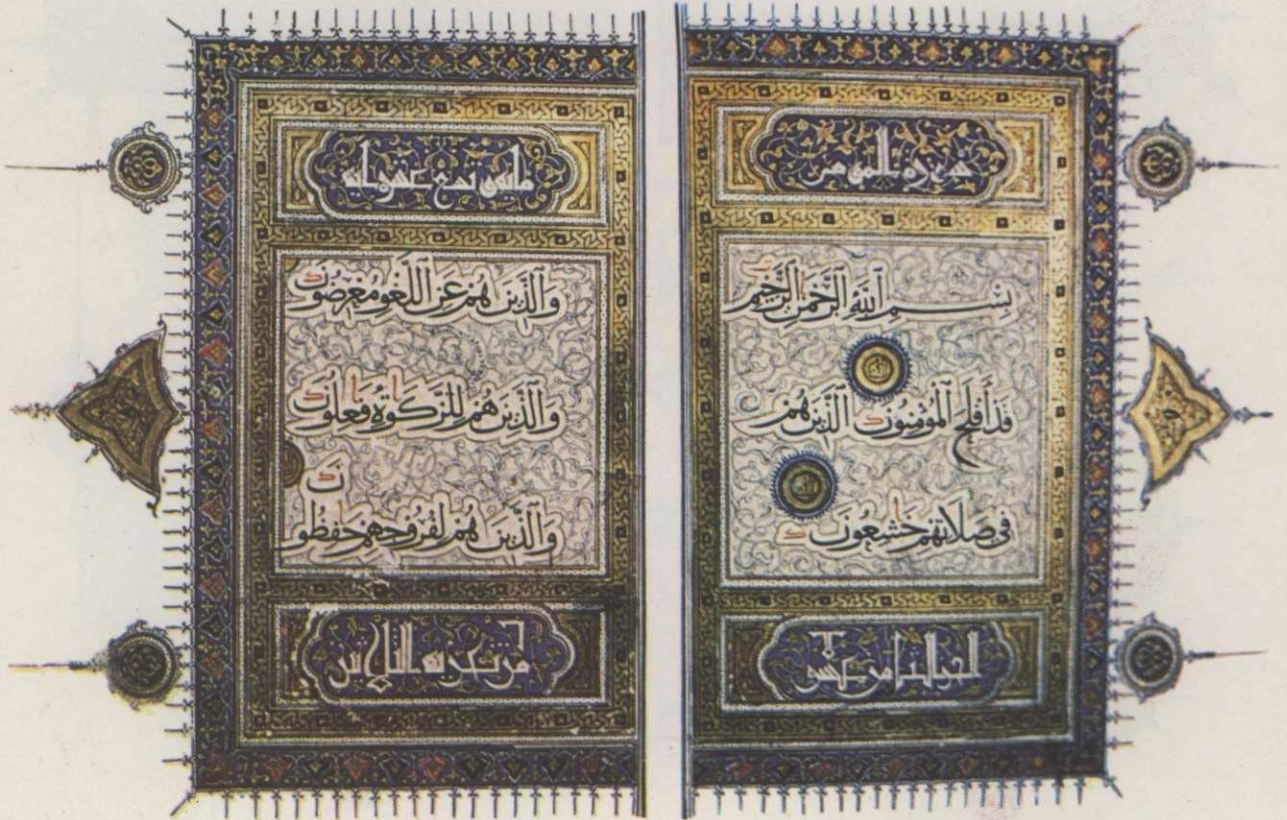 سورة المؤمنين
بِسْمِ ٱللَّهِ ٱلرَّحْمَٰنِ ٱلرَّحِيمِ
قَدْ أَفْلَحَ ٱلْمُؤْمِنُونَ ٱلَّذِينَ هُمْ
فِي صَلَاتِهِمْ خَٰشِعُونَ
الجزو الثامن عشر
وَٱلَّذِينَ هُمْ عَنِ ٱللَّغْوِ مُعْرِضُونَ
وَٱلَّذِينَ هُمْ لِلزَّكَوٰةِ فَٰعِلُونَ
وَٱلَّذِينَ هُمْ لِفُرُوجِهِمْ حَٰفِظُونَ
من تجزية الثلاثين